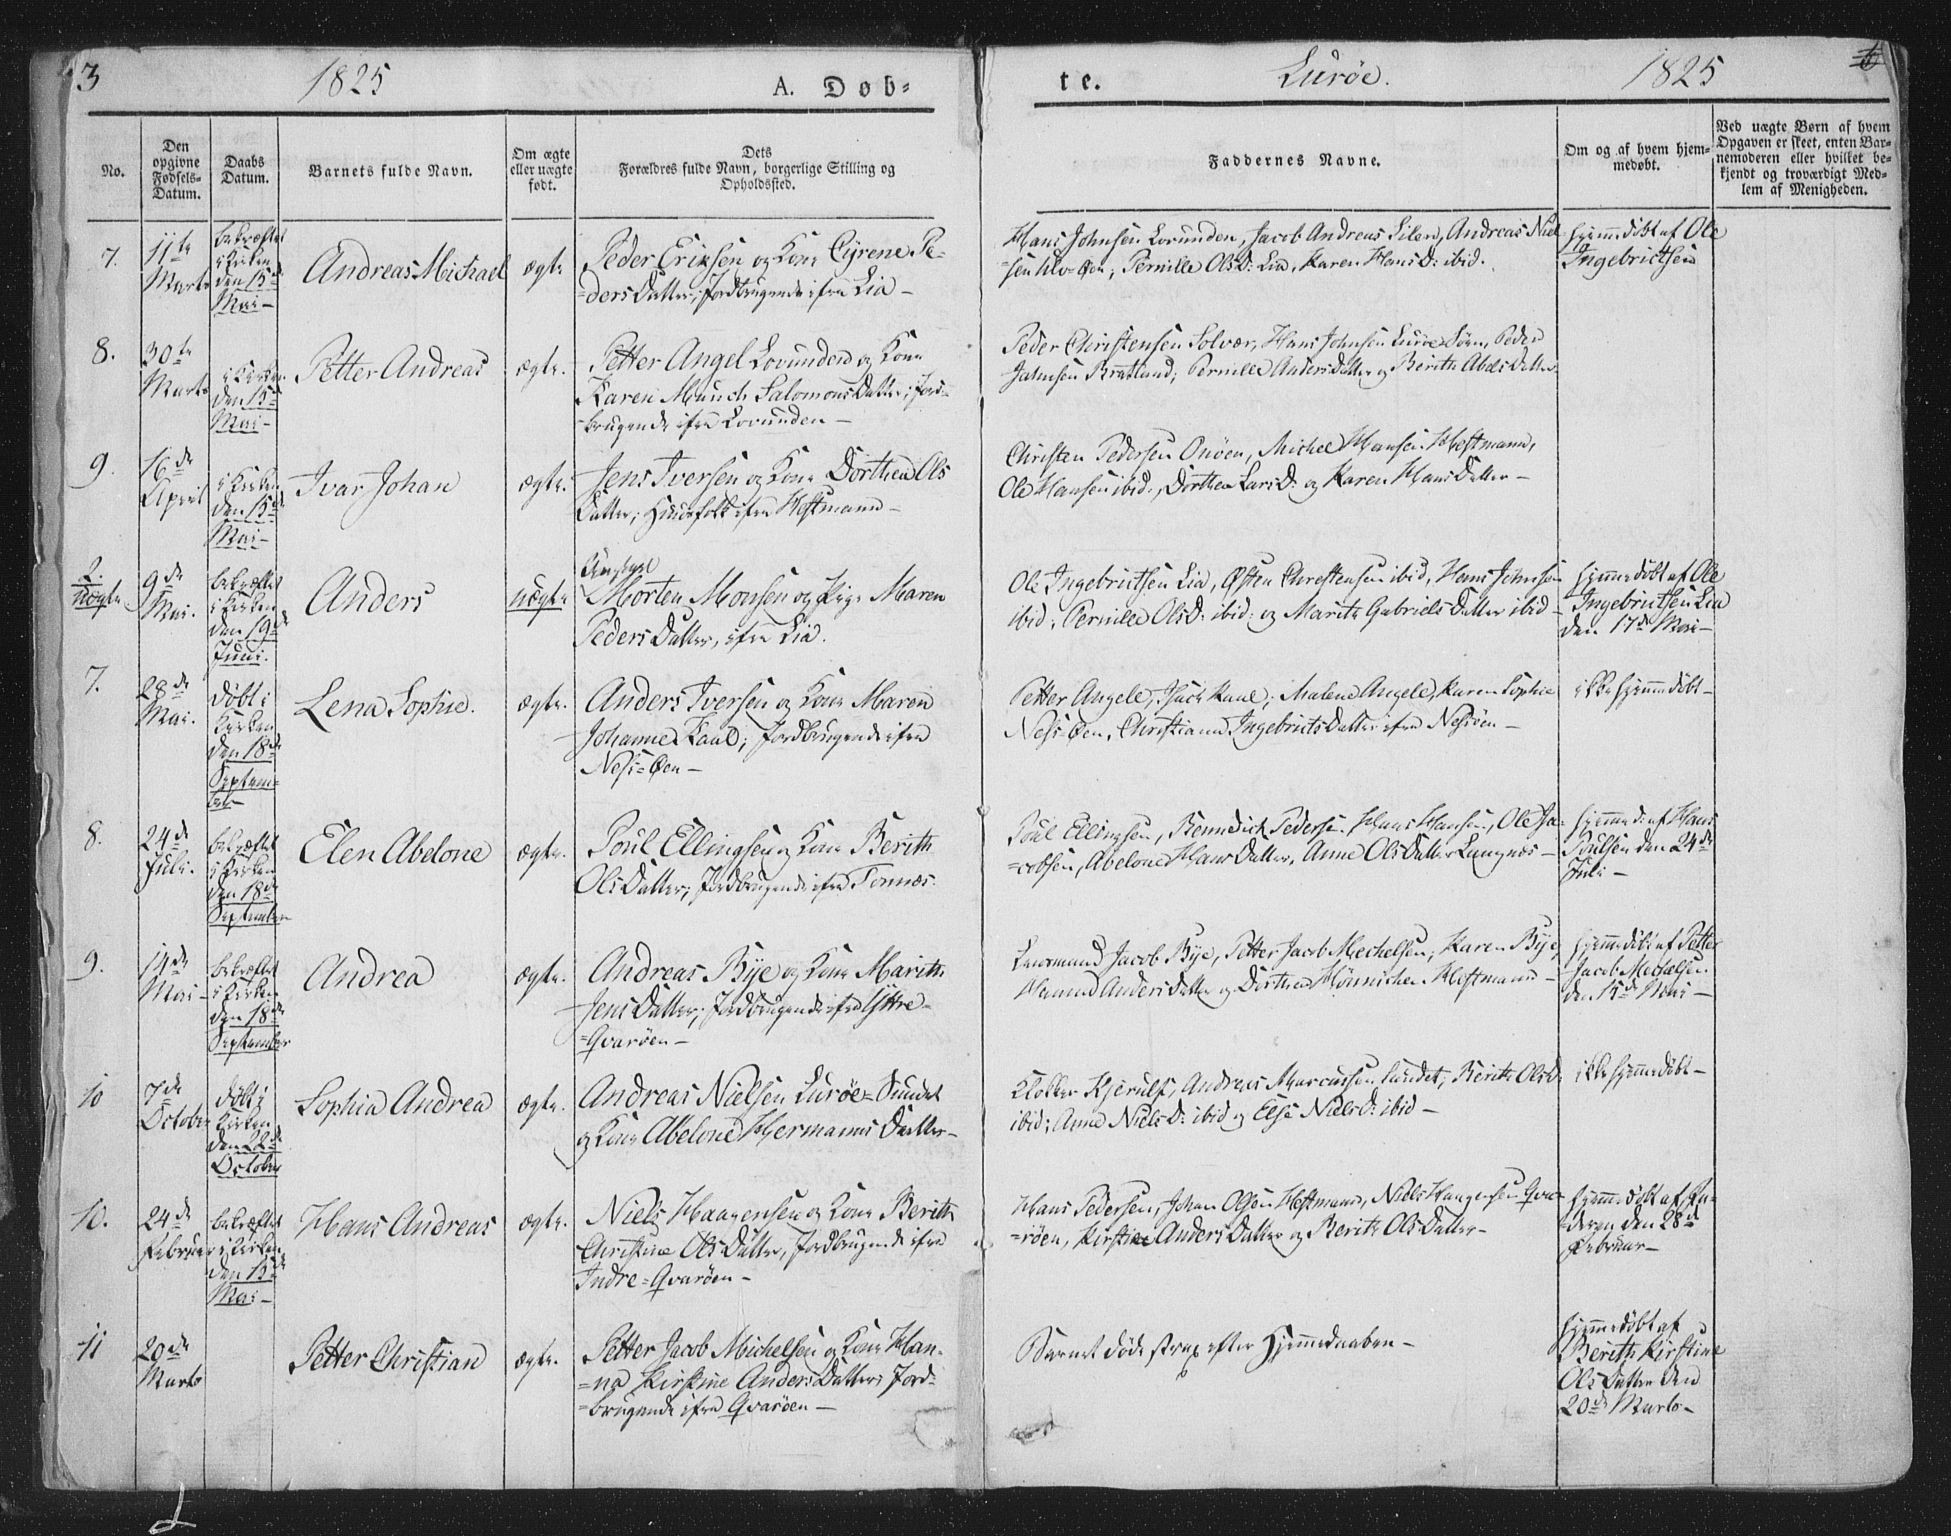 3 1825 A. Døb=
te. Lurøe. 1825 6
No.
Den
opgivne
Fødsels-
Datum.
Daabs
Datum.
Barnets fulde Navn.
Om ægte
eller uægte
født.
Dets
Forældres fulde Navn, borgerlige Stilling og
Opholdssted.
Faddernes Navne.
Om og af hvem hjem-
medøbt.
Ved uægte Børn af hvem
Opgaven er skeet, enten Bar-
nemoderen eller hvilket be-
kjendt og troværdigt Med-
lem af Menigheden.
7.
11te
Marts
bekræftet
i Kirken
den 15de
Mai –
Andreas Michael
ægte
Peder Eriksen og Kone Cyrene Pe-
=ders Datter; Jordbrugende ifra Lia –
Hans Johnsen Lovunden, Jacob Andreas Eilers, Andreas Niel
=sen Øen; Pernille Ols D: Lia, Karen Hans D: ibid.
hjemmedøbt af Ole
Ingebrictsen
8.
30te
Marts
i Kirken
den 15de
Mai –
Petter Andreas
ægte.
Petter Angel Lovunden og Kone
Karen Munch Salomons Datter; Jord-
-brugende ifra Lovunden –
Peder Christensen Solvær, Hans Johnsen Lurøe, Peder
Johnsen Bratland; Pernille Anders Datter og Berith Abels Datter
9.
16de
April
i Kirken
den 15de
Mai –
Ivar Johan
ægte.
Jens Iversen og Kone Dorthea Ols
Datter; Huusfolk ifra Hestmann –
Christen Pedersen Onøen, Michel Hansen Hestmann,
Ole Hansen ibid., Dorthea Lars D: og Karen Hans Datter –
2.
uægte
9de
Mai.
bekræftet
i Kirken
den 19de
Juni.
Anders
uægte
Ungkarl
Morten Monsen og Pige Maren
Peders Datter, ifra Lia.
Ole Ingebrictsen Lia, Østen Christensen ibid, Hans Johnsen
ibid; Pernille Ols D: ibid: og Marith Gabriels Datter ibid –
hjemmedøbt af Ole
Ingebrictsen Lia
den 17de Mai –
7.
28de
Mai.
døbt i
Kirken
den 18de
Septem-
ber –
Lena Sophie.
ægte.
Anders Iversen og Kone Maren
Johanne Kaal; Jordbrugende ifra
Nesi=Øen –
Petter Angele, Isack Kaal; Malene Angele, Karen Sophie
Nesi-Øen, Christiana Ingebricts Datter ifra Nesiøen –
ikke hjemmedøbt –
8.
24de
Juli.
bekræftet
i Kirken
den 18de
September
Elen Abelone
ægte.
Poul Ellingsen og Kone Berith
Ols Datter; Jordbrugende ifra Tonnes.
Poul Ellingsen, Benedict Pedersen, Hans Hansen, Ole Ja-
=cobsen, Abelone Hans Datter, Anne Ols Datter Langnæs –
hjemmed: af Hans
Poulsen den 24de
Juli –
9.
14de
Mai –
bekræftet
i Kirken
den 18de
September
Andrea
ægte.
Andreas Bye og Kone Marith
Jens Datter; Jordbrugende ifra Yttre-
=Qvarøen –
Lensmand Jacob Bye, Petter Jacob Mechelsen, Karen Bye,
Hanna Anders Datter og Dorthea Hönnichen Hestmann –
hjemmedøbt af Petter
Jacob Mechelsen
den 15de Mai –
10
7de
October
døbt i
Kirken
den 22de
October
Sophia Andrea
ægte.
Andreas Nielsen Lurøe-Sundet
og Kone Abelone Hermanns Datter –
Klokker Kjerulf, Andreas Marcussen Sundet, Berith Ols D:
ibid; Anna Niels D: ibid og Else Niels D: ibid –
ikke hjemmedøbt –
10.
24de
Februar
bekræftet
i Kirken
den 15de
Mai –
Hans Andreas
ægte.
Niels Haagensen og Kone Berith
Christine Ols Datter, Jordbrugende ifra
Indre=Qvarøen –
Hans Pedersen, Johan Olsen Hestmann, Niels Haagensen Qva-
=røen, Kirstine Anders Datter og Berith Ols Datter –
hjemmedøbt af Fa-
deren den 28de
Februar –
11
20de
Marts
Petter Christian
ægte.
Petter Jacob Michelsen og Kone Han-
=na Kirstine Anders Datter; Jord-
=brugende ifra Qvarøen –
Barnet døde strax efter Hjemmedaaben –
hjemmedøbt af
Berith Kirstine
Ols Datter den
20de Marts –